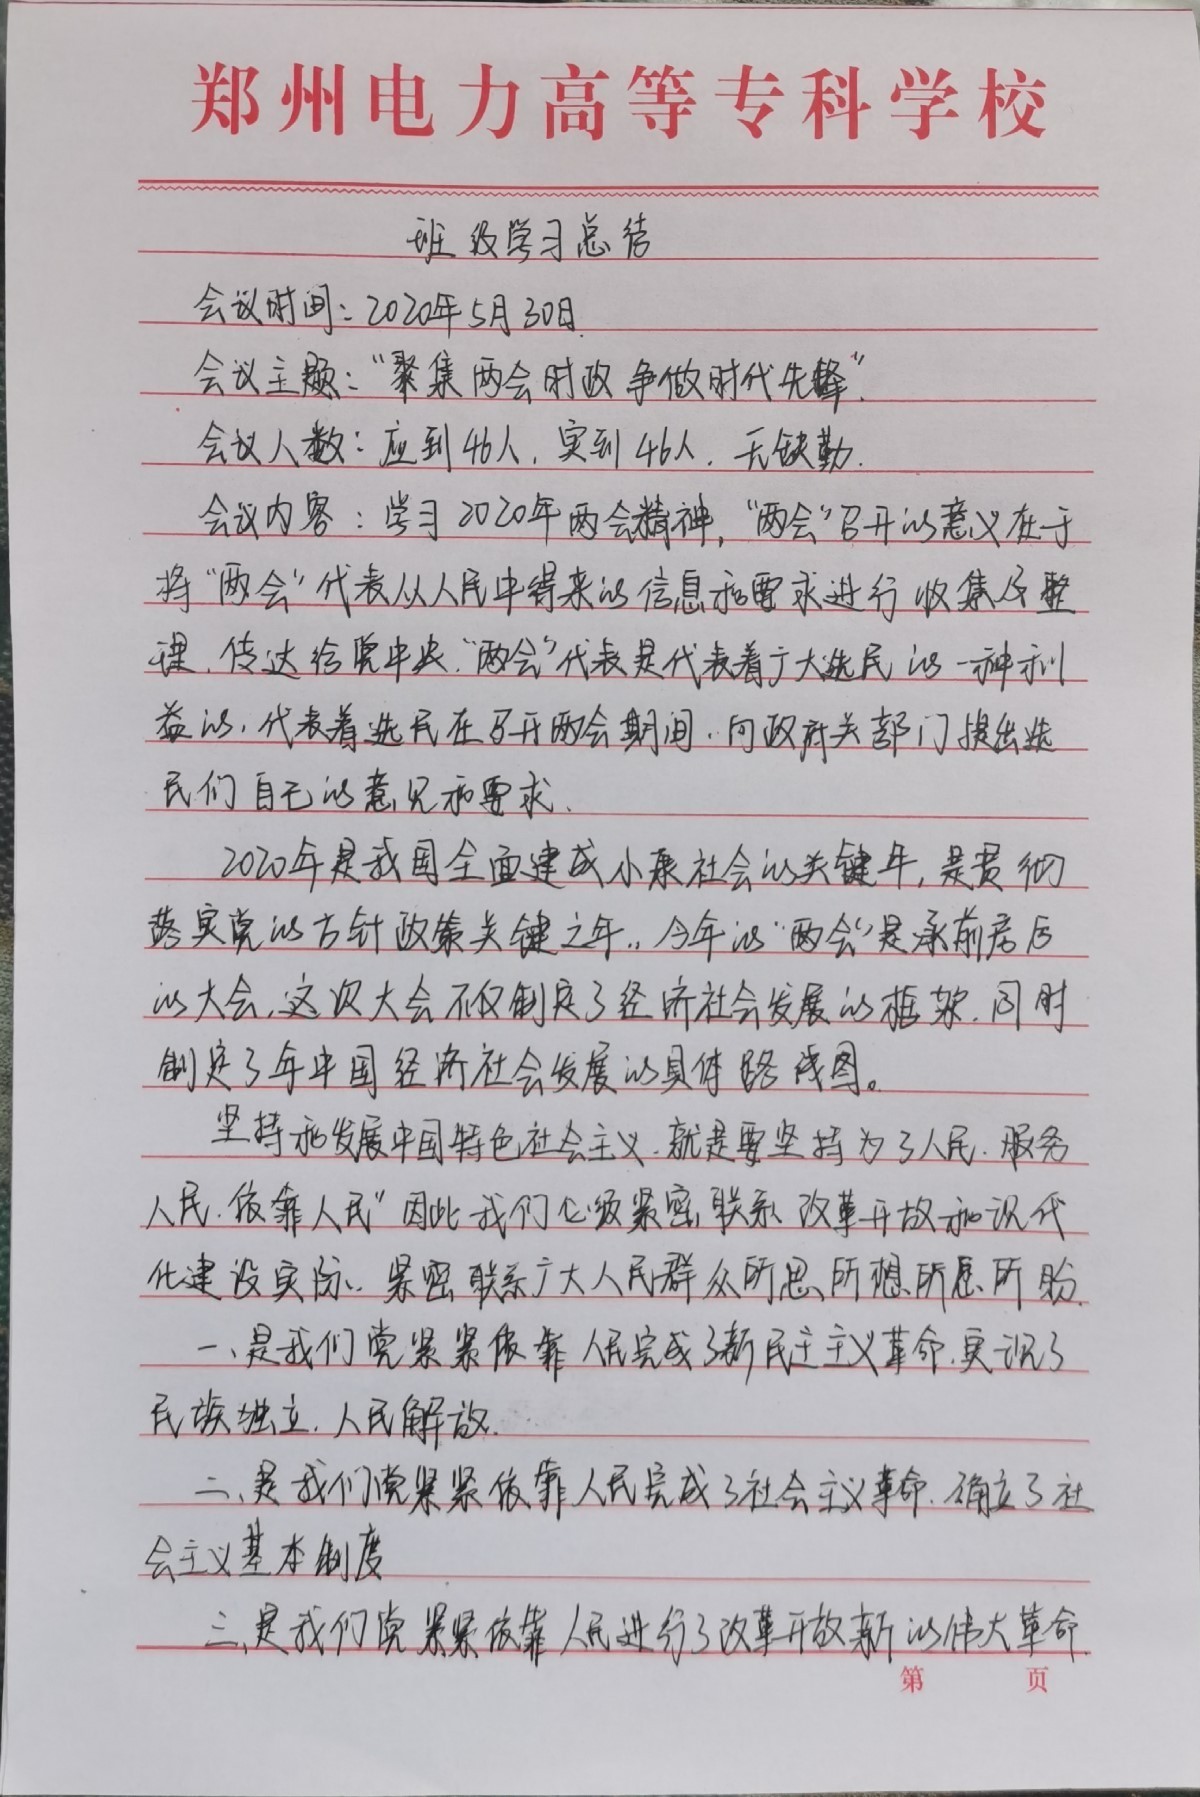 郑州电力高等专科学校
班级学习总结
会议时间：2020年5月30日
会议主题：“聚集两会时政 争做时代先锋”.
会议人数：应到46人，实到46人，无缺勤.
会议内容：学习2020年两会精神，“两会”召开的意义在于
将“两会”代表从人民中得来的信息和要求进行收集及整
理，传达给党中央.“两会”代表是代表着广大选民的一种利
益的，代表着选民在召开两会期间，向政府关部门提出选
民们自己的意见和要求.
2020年是我国全面建成小康社会的关键年，是贯彻
落实党的方针政策关键之年.，今年的“两会”是承前启后
的大会，这次大会不仅制定了经济社会发展的框架，同时
制定了年中国经济社会发展的具体路线图。
坚持和发展中国特色社会主义.就是要坚持为了人民.服务
人民.依靠人民”因此我们必须紧密联系改革开放和现代
化建设实际.紧密联系广大人民群众所思所想所愿所盼.
一、是我们党紧紧依靠人民完成了新民主主义革命.实现了
民族独立.人民解放.
二、是我们党紧紧依靠人民完成了社会主义革命.确立了社
会主义基本制度
三、是我们党紧紧依靠人民进行了改革开放新的伟大革命.
第 页